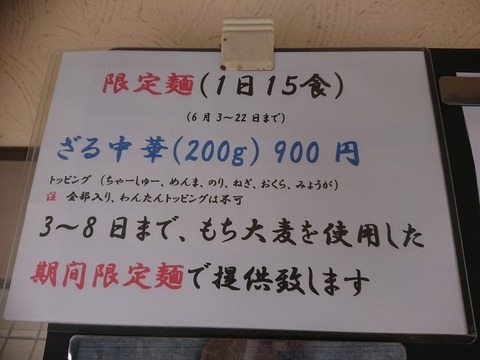 限定麺(1日15食)
(6月3〜22日まで)
ざる中華(200g) 900円
トッピング (ちゃーしゅー、めんま、のり、ねぎ、おくら、みょうが)
注 全部入り、わんたんトッピングは不可
3〜8日まで、もち大麦を使用した
期間限定麺で提供致します